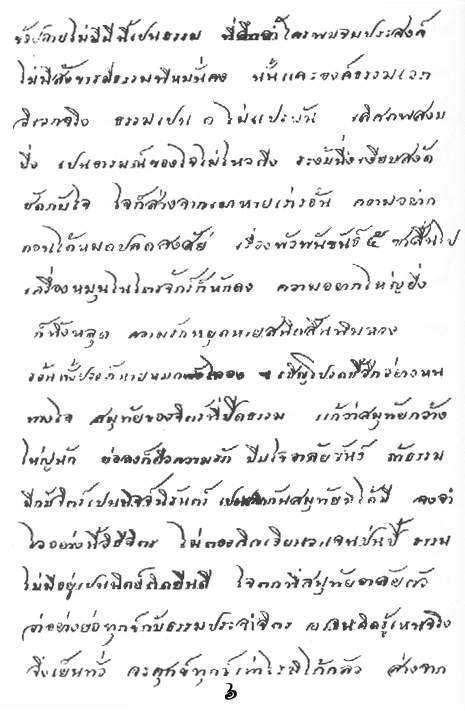 ยังปลายไม่มีนี้เปนธรรม ที่ลึกล้ำ ใครพบจบประสงค์
ไม่มีสังขารมีธรรมที่หมั่นคง นั้นแและองค์ธรรมเอก
วิเวกจริง ธรรมเปน ๑ ไม่แปรผัน เลิศภพสงบ
ยิ่ง เปนอารมณ์ของใจไม่ไหวติง ระงับนิ่งเงียบสงัด
ชัดกับใจ ใจก็ส่างจากเมาหายเร่าร้อน ความอยาก
ถอนได้หมดปลดสงสัย เรื่องพัวพันขันธ์ ๕ ซาสิ้นไป
เครื่องหมุนในไตรจักร์ก็หักลง ความอยากใหญ่ยิ่ง
ก็ทิ้งหลุด ความรักหยุดหายสนิทสิ้นพิศวง
ร้อนทั้งปวงก็หายหมด เชิญโปรดชี้อีกอย่างหน
ทางใจ สมุทัยของจิตร์ที่ปิดธรรม แก้ว่าสมุทัยกว้าง
ใหญ่นัก ย่อลงก็คือความรัก บีบใจอาลัยขันธ์ ถ้าธรรม
มีกับจิตร์เปนนิจจ์นิรันดร์ เปนเลิกกันสมุทัยมิได้มี จงจำ
ไว้อย่างนี้วิถีจิตร ไม่ตองคิดเวียนวนจนป่นปี้ ธรรม
ไม่มีอยู่เปนนิตย์ติดยินดี ใจตกที่สมุทัยอาลัยตัว
ว่าอย่างย่อทุกข์กับธรรมประจำจิตร เอาจนคิดรู้เหนจริง
จึงเย็นทั่ว จะสุขทุกข์เท่าไรมิได้กลัว ส่างจาก
๖